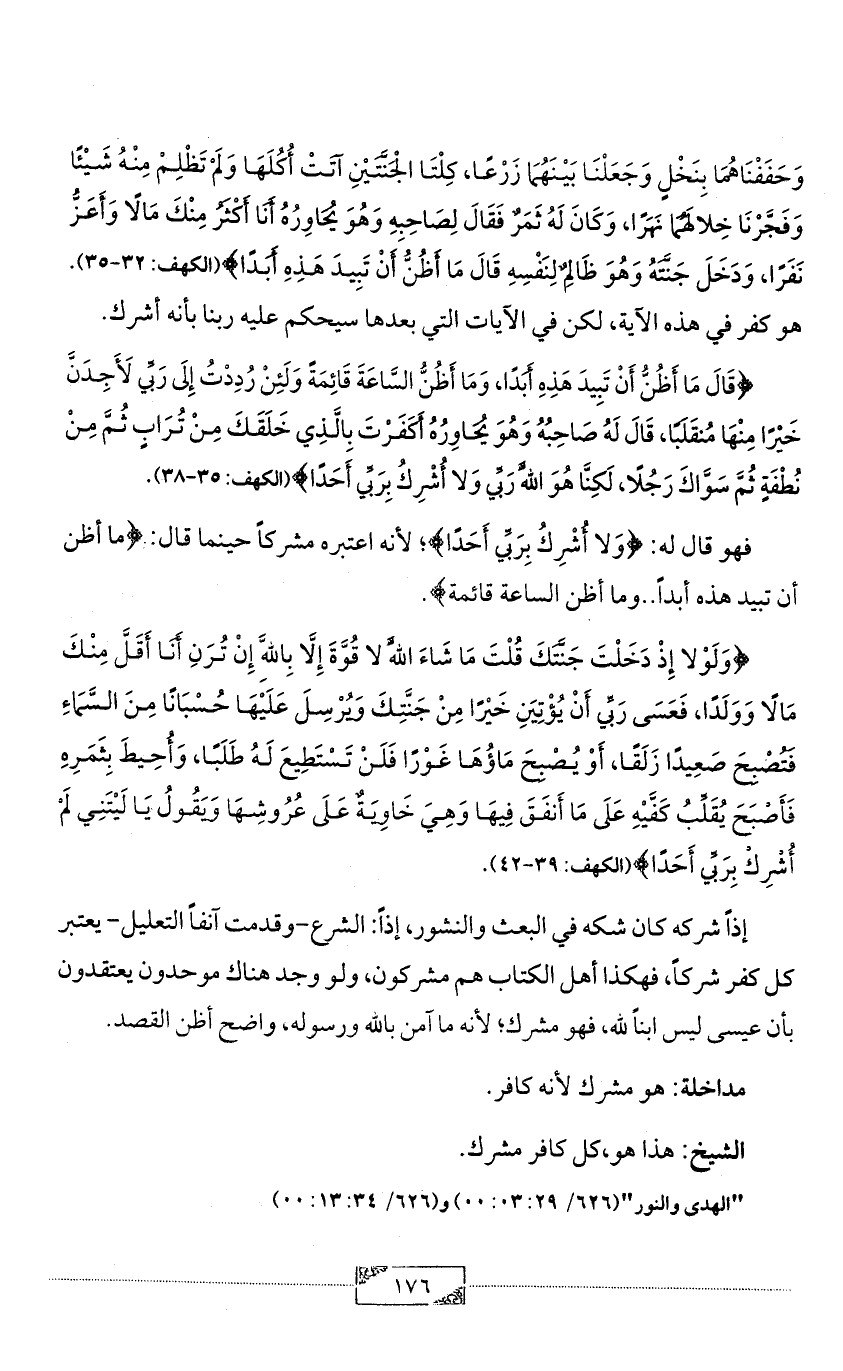 وَحَفَفْنَاهُمَا بِنَخْلٍ وَجَعَلْنَا بَيْنَهُمَا زَرْعًا، كِلْتَا الْجَنَّتَيْنِ آتَتْ أُكُلَهَا وَلَمْ تَظْلِمْ مِنْهُ شَيْئًا
وَفَجَّرْنَا خِلالَهُمَا نَهَرًا، وَكَانَ لَهُ ثَمَرٌ فَقَالَ لِصَاحِبِهِ وَهُوَ يُحَاوِرُهُ أَنَا أَكْثَرُ مِنْكَ مَالًا وَأَعَزُّ
نَفَرًا، وَدَخَلَ جَنَّتَهُ وَهُوَ ظَالِمٌ لِنَفْسِهِ قَالَ مَا أَظُنُّ أَنْ تَبِيدَ هَذِهِ أَبَدًا﴾(الكهف: ٣٢-٣٥).
هو كفر في هذه الآية، لكن في الآيات التي بعدها سيحكم عليه ربنا بأنه أشرك.
﴿قَالَ مَا أَظُنُّ أَنْ تَبِيدَ هَذِهِ أَبَدًا، وَمَا أَظُنُّ السَّاعَةَ قَائِمَةً وَلَئِنْ رُدِدْتُ إِلَى رَبِّي لَأَجِدَنَّ
خَيْرًا مِنْهَا مُنقَلَبًا، قَالَ لَهُ صَاحِبُهُ وَهُوَ يُحَاوِرُهُ أَكَفَرْتَ بِالَّذِي خَلَقَكَ مِنْ تُرَابٍ ثُمَّ مِنْ
نُطْفَةٍ ثُمَّ سَوَّاكَ رَجُلًا، لَكِنَّا هُوَ اللهُ رَبِّي وَلا أُشْرِكُ بِرَبِّي أَحَدًا﴾(الكهف: ٣٥-٣٨).
فهو قال له: ﴿وَلا أُشْرِكُ بِرَبِّي أَحَدًا﴾؛ لأنه اعتبره مشركاً حينما قال: ﴿ما أظن
أن تبيد هذه أبداً..وما أظن الساعة قائمة﴾.
﴿وَلَوْلا إِذْ دَخَلْتَ جَنَّتَكَ قُلْتَ مَا شَاءَ اللهُ لا قُوَّةَ إِلَّا بِاللهِ إِنْ تُرَنِ أَنَا أَقَلَّ مِنْكَ
مَالًا وَوَلَدًا، فَعَسَى رَبِّي أَنْ يُؤْتِيَنِ خَيْرًا مِنْ جَنَّتِكَ وَيُرْسِلَ عَلَيْهَا حُسْبَانًا مِنَ السَّمَاءِ
فَتُصْبِحَ صَعِيدًا زَلَقًا، أَوْ يُصْبِحَ مَاؤُهَا غَوْرًا فَلَنْ تَسْتَطِيعَ لَهُ طَلَبًا، وَأُحِيطَ بِثَمَرِهِ
فَأَصْبَحَ يُقَلِّبُ كَفَّيْهِ عَلَى مَا أَنفَقَ فِيهَا وَهِيَ خَاوِيَةٌ عَلَى عُرُوشِهَا وَيَقُولُ يَا لَيْتَنِي لَمْ
أُشْرِكْ بِرَبِّي أَحَدًا﴾(الكهف: ٣٩-٤٢).
إذاً شركه كان شكه في البعث والنشور، إذاً: الشرع-وقدمت آنفاً التعليل-يعتبر
كل كفر شركاً، فهكذا أهل الكتاب هم مشركون، ولو وجد هناك موحدون يعتقدون
بأن عيسى ليس ابناً لله، فهو مشرك؛ لأنه ما آمن بالله ورسوله، واضح أظن القصد.
مداخلة: هو مشرك لأنه كافر.
الشيخ: هذا هو،كل كافر مشرك.
"الهدى والنور"(٦٢٦/ ٢٩: ٠٣: ٠٠) و(٦٢٦/ ٣٤: ١٣: ٠٠)
١٧٦